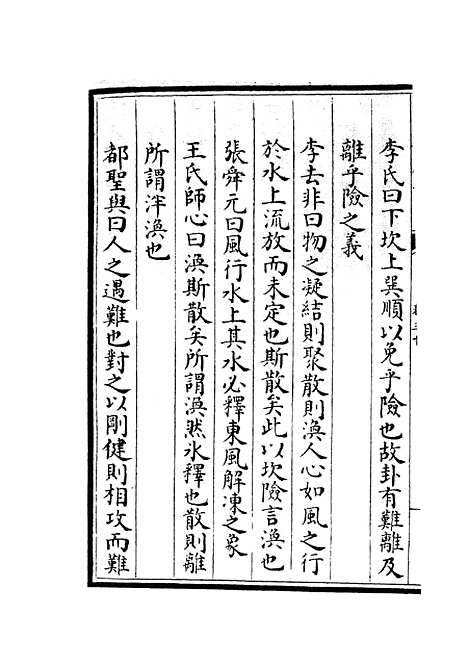 李氏曰下坎上巽順以免乎險也故卦有難離及
離乎險之義
李去非曰物之凝結則聚散則渙人心如風之行
於水上流放而未定也斯散矣此以坎險言渙也
張舜元曰風行水上其水必釋東風解凍之象
王氏師心曰渙斯散矣所謂渙然冰釋也散則離
所謂泮渙也
都聖與曰人之遇難也對之以剛健則相攻而難